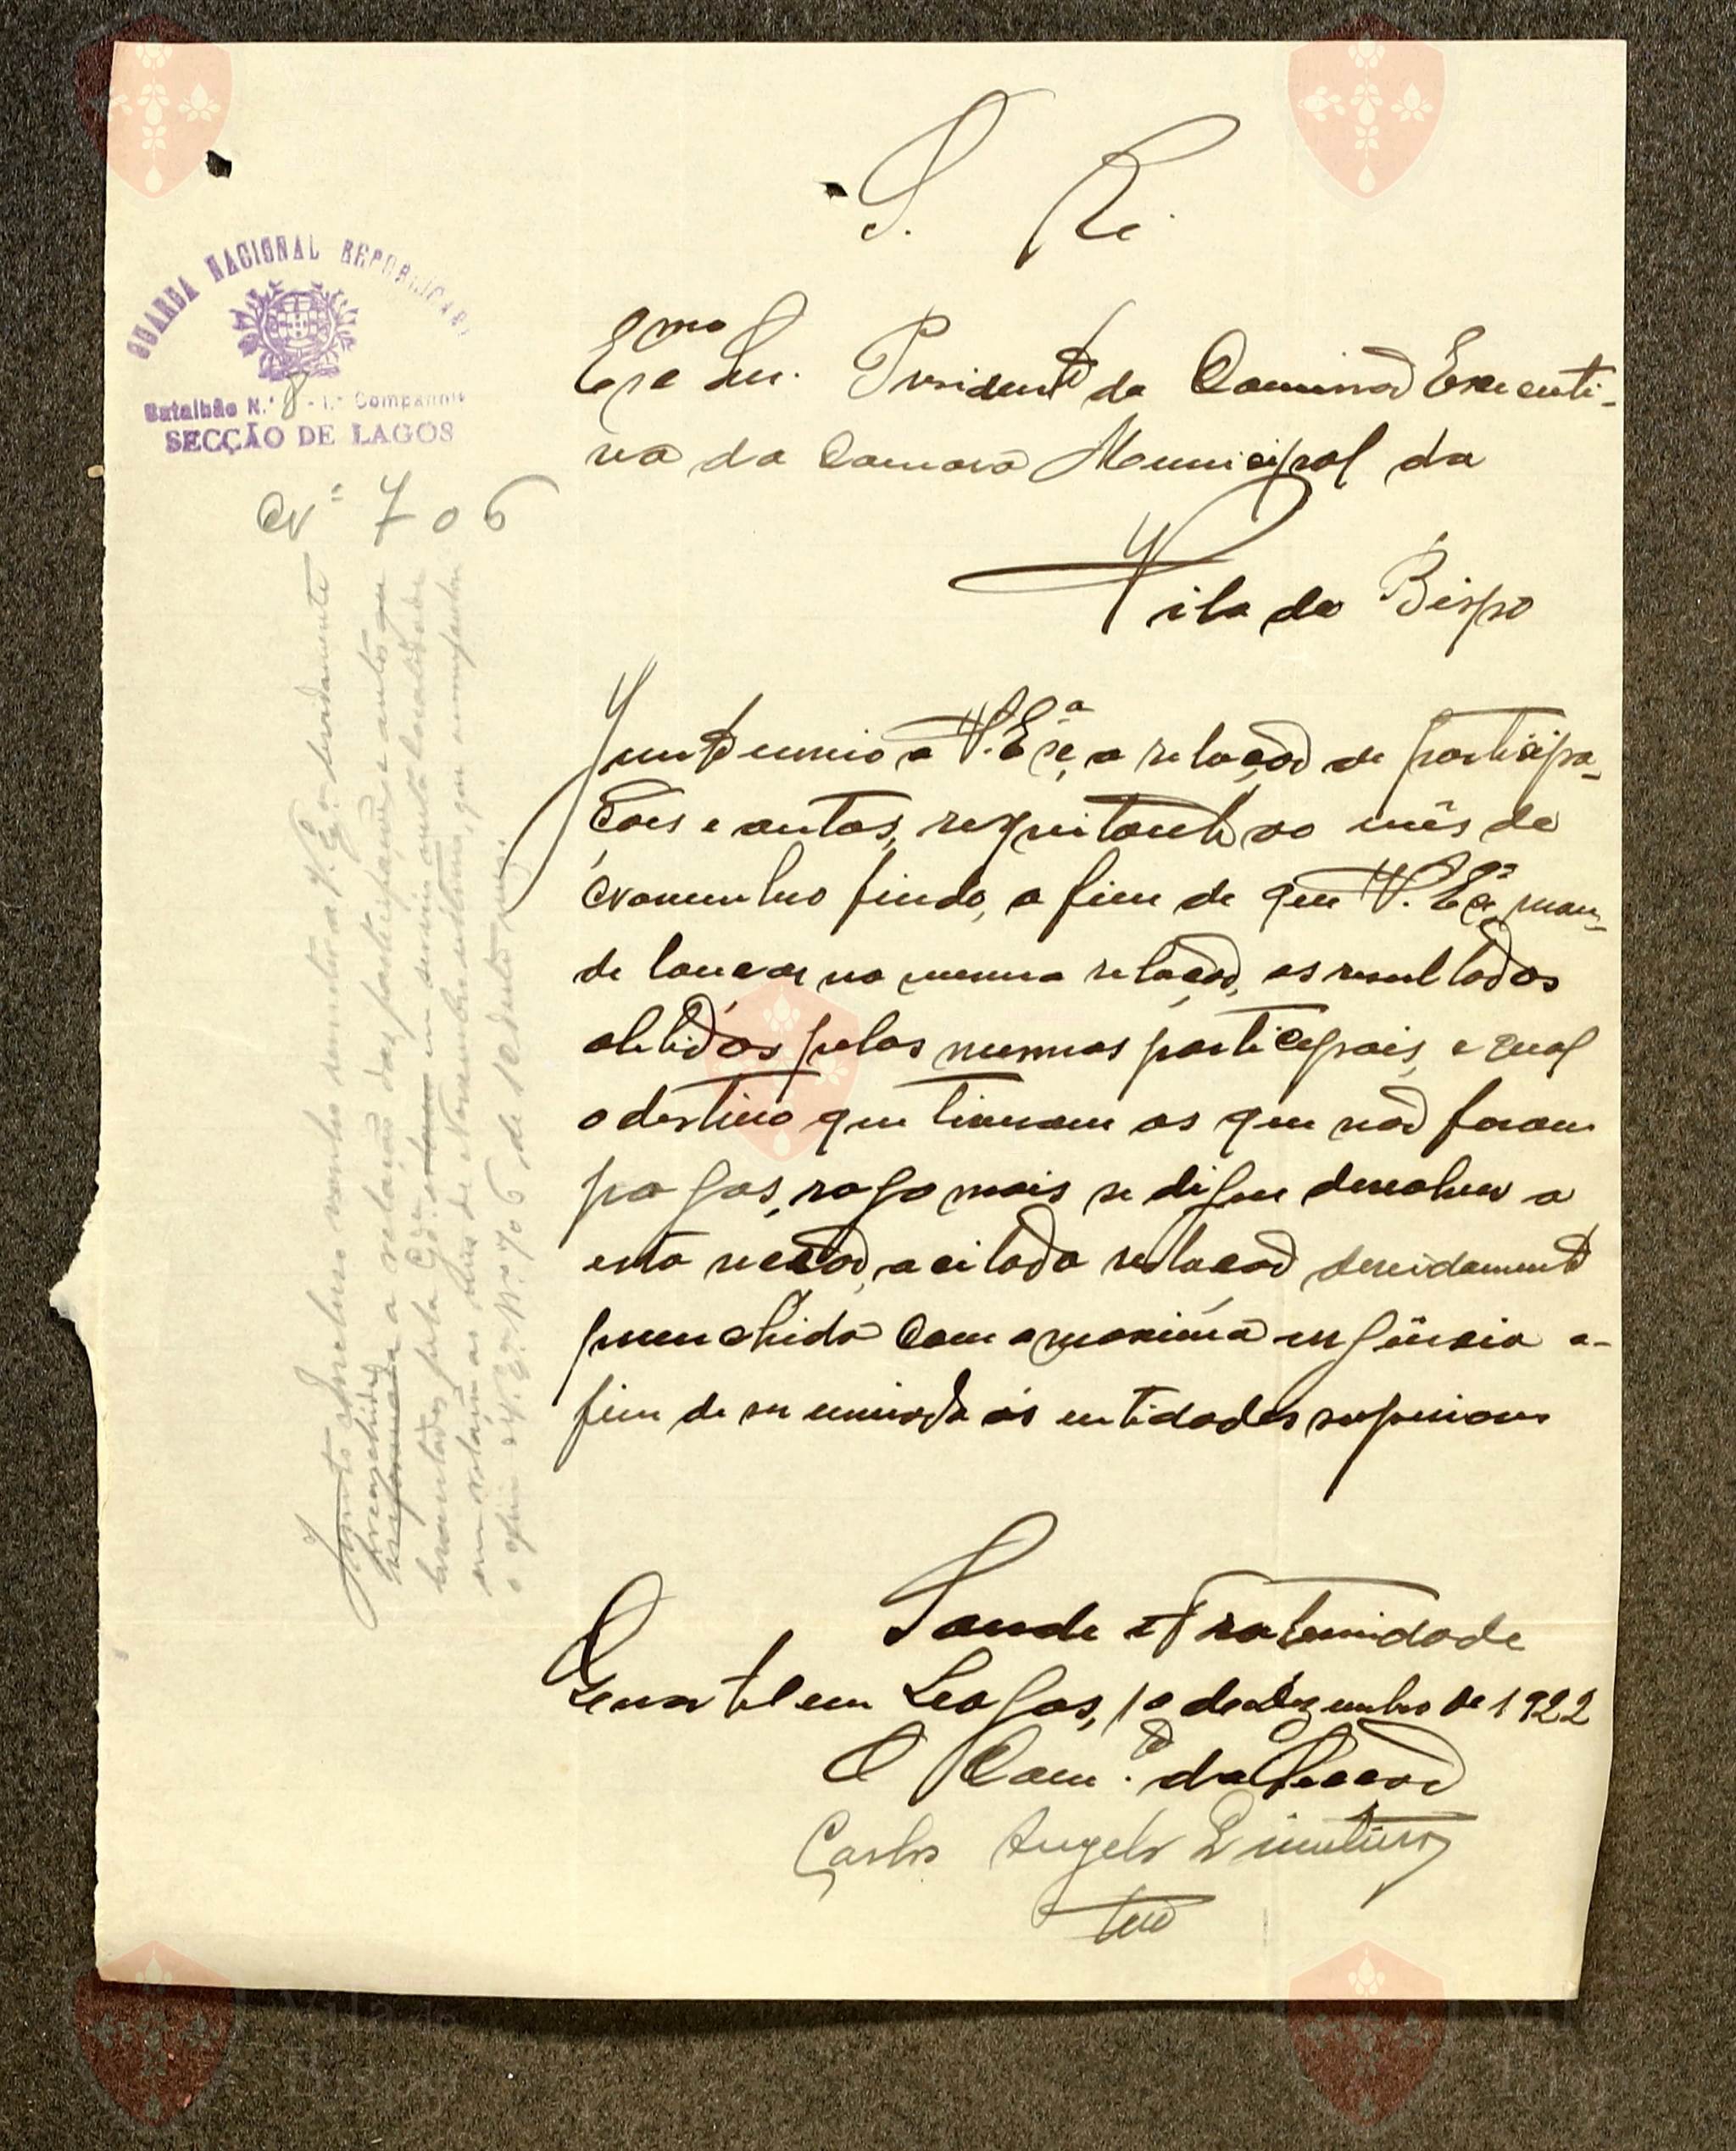 S. R.
GUARDA NACIONAL REPUBLICANA
Batalhão N.º 8 - 1.ª Companhia
SECÇÃO DE LAGOS
Nº 706
Exmo Snr. Presidente da Comissão Executi-
va da Camara Municipal da
Vila do Bispo
Junto envio a V. Exª, a relação de participa-
ções e autos, respeitante ao mês de
Novembro findo, a fim de que V. Exª, man-
de lançar na mesma relação, os resultados
obtidos pelas mesmas participais, e qual
o destino que tiveram as que não foram
pagas, rogo mais se digne devolver a
esta secção, a citada relação devidamente
preenchida com a maxima urgência a-
fim de ser enviada ás entidades superiores
Saude e Fraternidade
Quartel em Lagos, 10 de Dezembro de 1922
O Com.te da Secção
Carlos Angelo
Junto incluso venho remeter a V. Exª devidamente
preenchida a relação das participações e autos
levantados pela Gd. em serviço nesta localidade
o mês de Novembro ultimo, que acompanhou
o oficio de V. Exª Nº 706, de 10 de